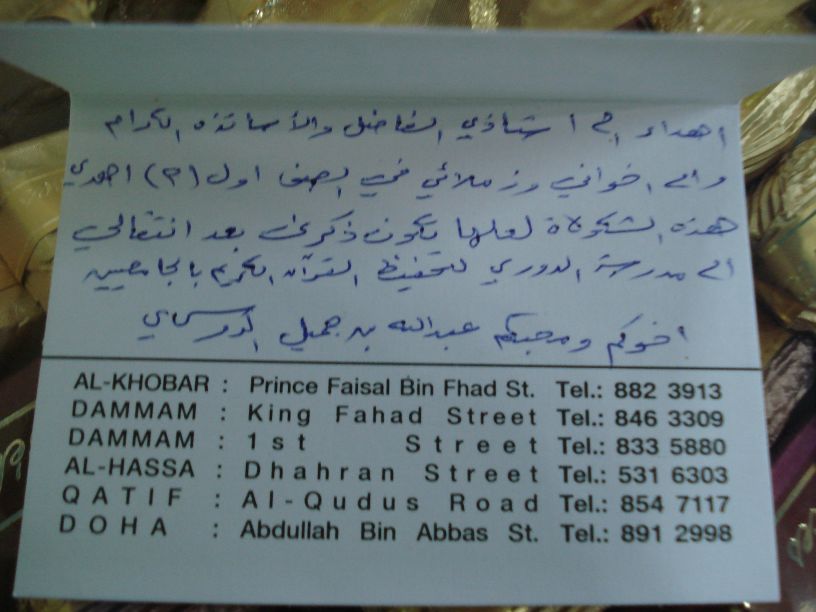 اهداء إلى استاذي الفاضل والأساتذة الكرام
وإلى اخواني وزملائي في الصف اول (٣) اهدي
هذه الشكولاتة لعلها تكون ذكرى بعد انتقالي
إلى مدرسة الدوري لتحفيظ القرآن الكريم بالجامعيين
اخوكم ومحبكم عبدالله بن جميل
AL-KHOBAR : Prince Faisal Bin Fhad St. Tel.: 882 3913
DAMMAM : King Fahad Street Tel.: 846 3309
DAMMAM : 1st Street Tel.: 833 5880
AL-HASSA : Dhahran Street Tel.: 531 6303
QATIF : Al-Qudus Road Tel.: 854 7117
DOHA : Abdullah Bin Abbas St. Tel.: 891 2998